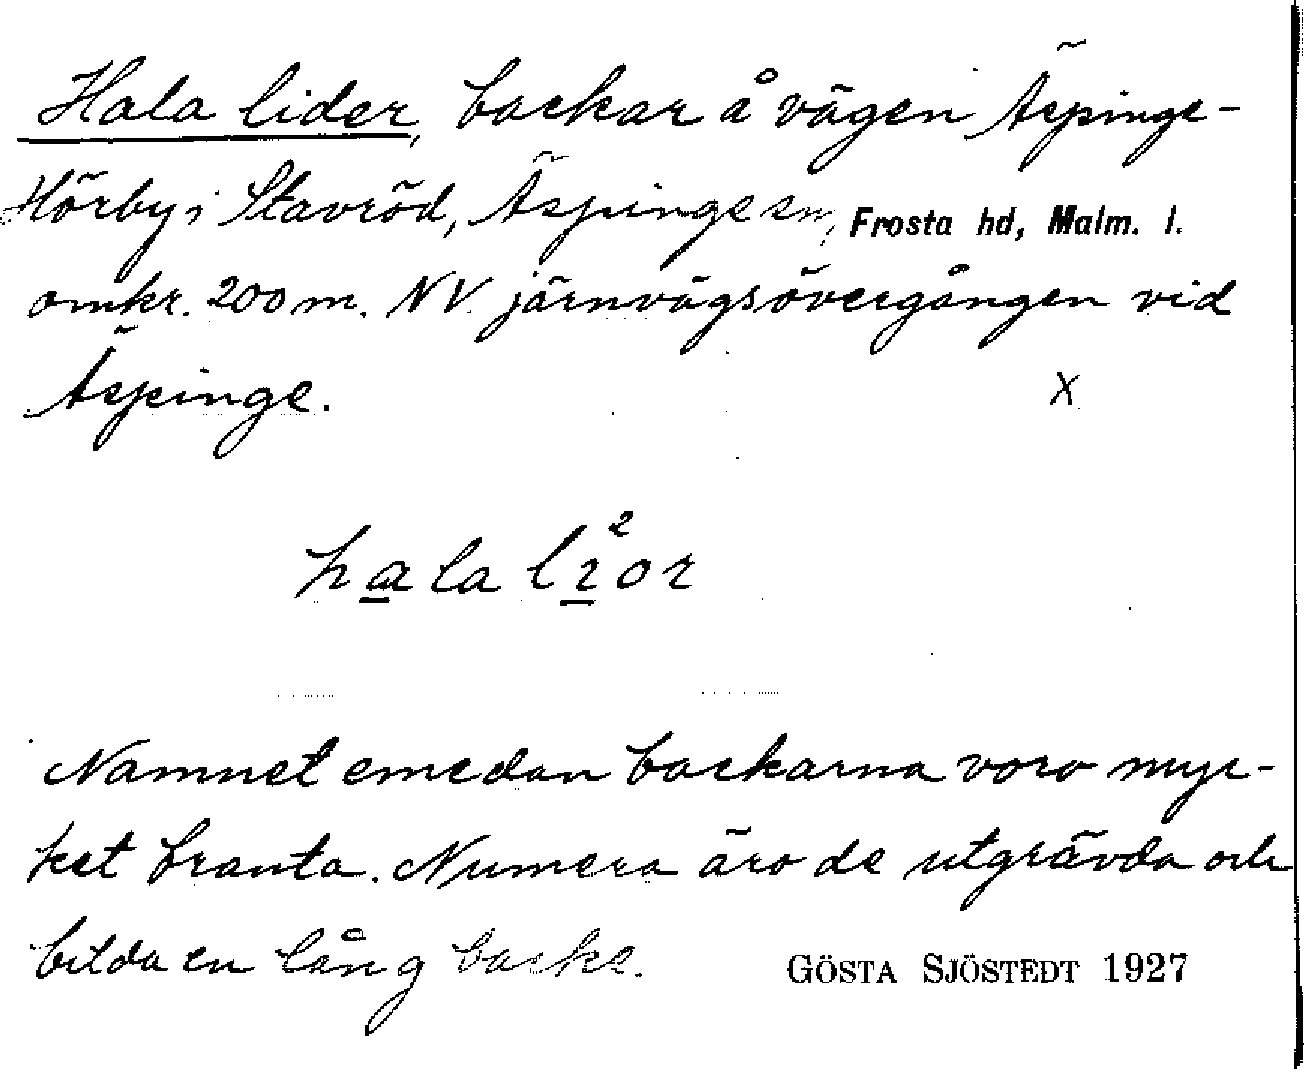 Hala lider, backar å vägen Äspinge-
Hörby i Stavröd, Äspinge sn, Frosta hd, Malm. l.
omkr. 200 m. NV. järnvägsövergången vid
Äspinge.
X
hala lior
Namnet emedan backarna voro myc-
ket branta. Numera äro de utgrävda och
bilda en lång backe.
GÖSTA SJÖSTEDT 1927